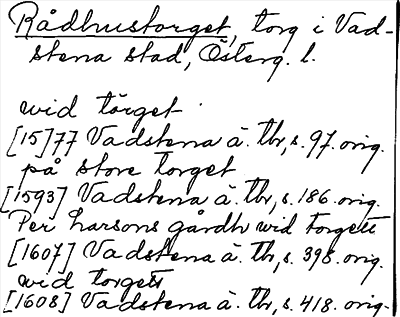 Rådhustorget, torg i Vad-
stena stad, Österg. l.
wid törget
[15]77 Vadstena ä. Tbr, s. 97. orig.
på store torget
[1593] Vadstena ä. Tbr, s. 186. orig.
Per Larsons gårdh wid torgett
[1607] Vadstena ä. Tbr, s. 398. orig.
wid torgett
[1608] Vadstena ä. Tbr, s. 418. orig.